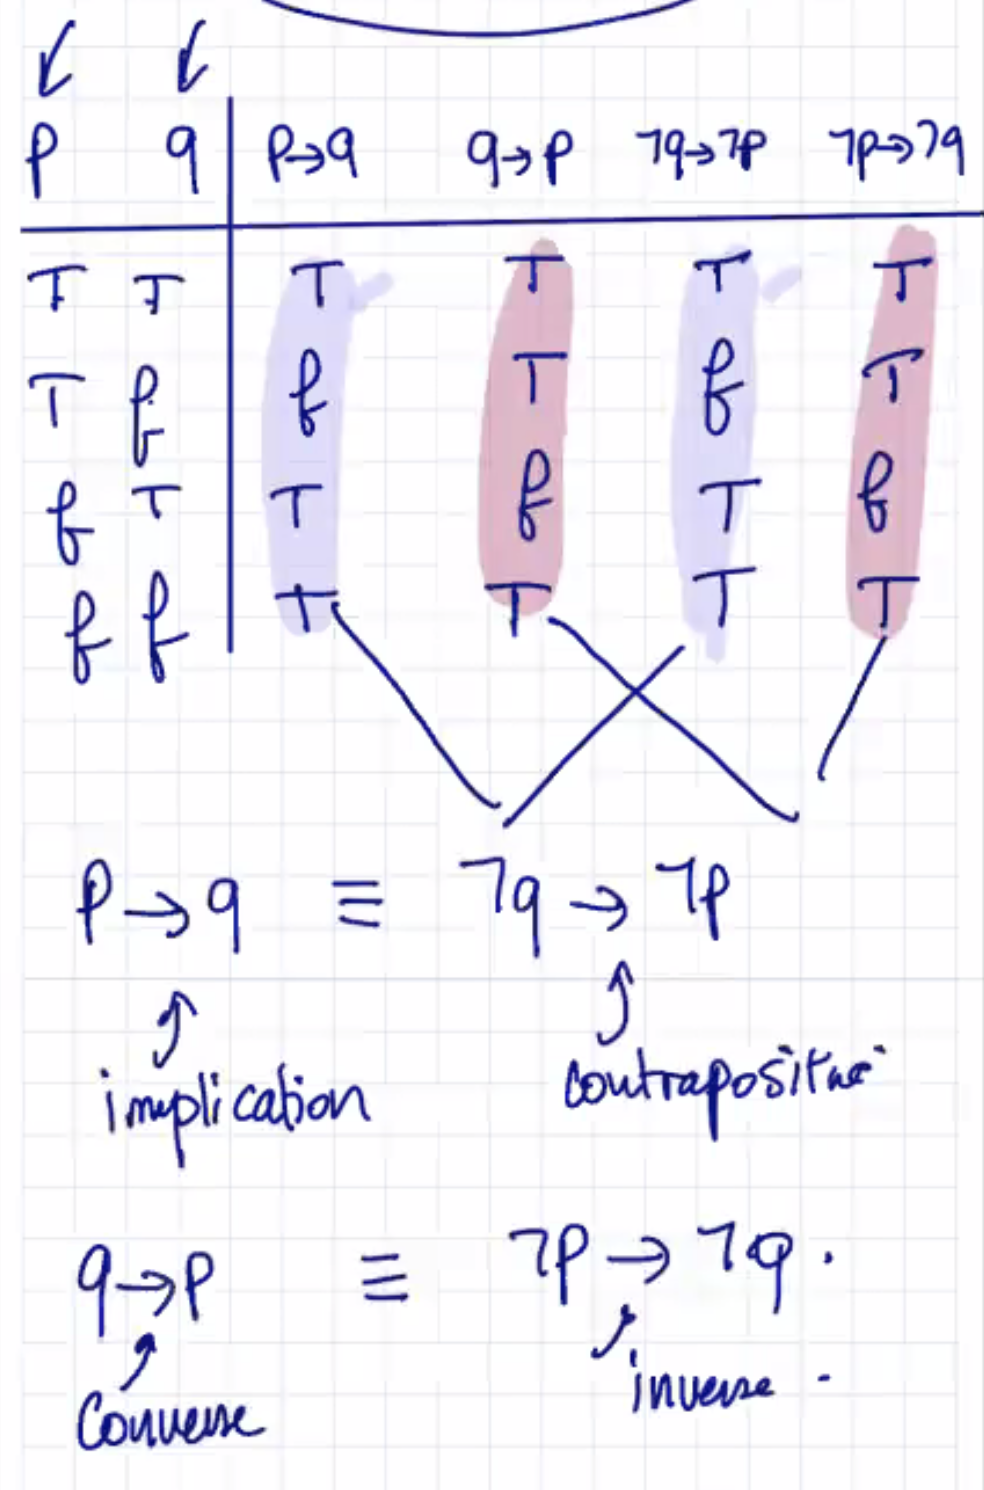 p q p→q q→p ¬q→¬p ¬p→¬q
T T T T T T
T f f T f T
f T T f T f
f f T T T T
p → q ≡ ¬q → ¬p
implication contrapositive
q → p ≡ ¬p → ¬q .
Converse inverse -